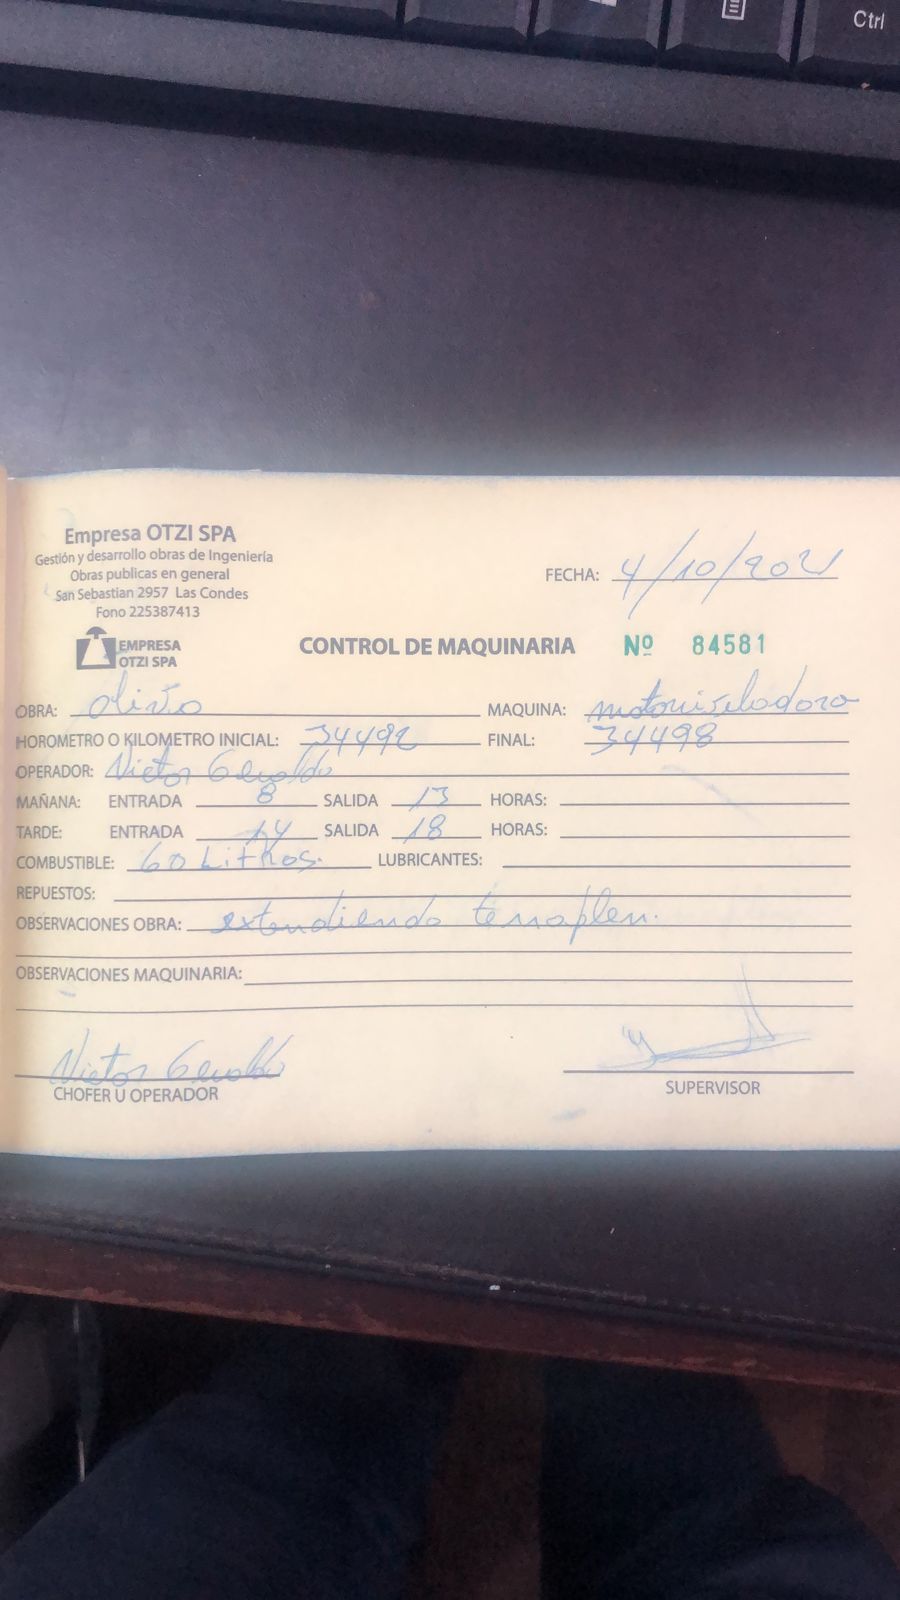 Ctrl
Empresa OTZI SPA
Gestión y desarrollo obras de Ingeniería
Obras publicas en general
San Sebastian 2957 Las Condes
Fono 225387413
FECHA: 4/10/2021
EMPRESA
OTZI SPA
CONTROL DE MAQUINARIA Nº 84581
OBRA: olivo MAQUINA: motoniveladora
HOROMETRO O KILOMETRO INICIAL: 34492 FINAL: 34498
OPERADOR: Victor Geraldo
MAÑANA: ENTRADA 8 SALIDA 13 HORAS:
TARDE: ENTRADA 14 SALIDA 18 HORAS:
COMBUSTIBLE: 60 Litros. LUBRICANTES:
REPUESTOS:
OBSERVACIONES OBRA: extendiendo terraplen.
OBSERVACIONES MAQUINARIA:
Victor Geraldo
CHOFER U OPERADOR
SUPERVISOR